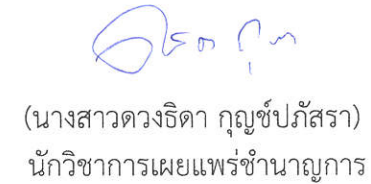 (นางสาวดวงธิดา กุญช์ปภัสรา)
นักวิชาการเผยแพร่ชำนาญการ